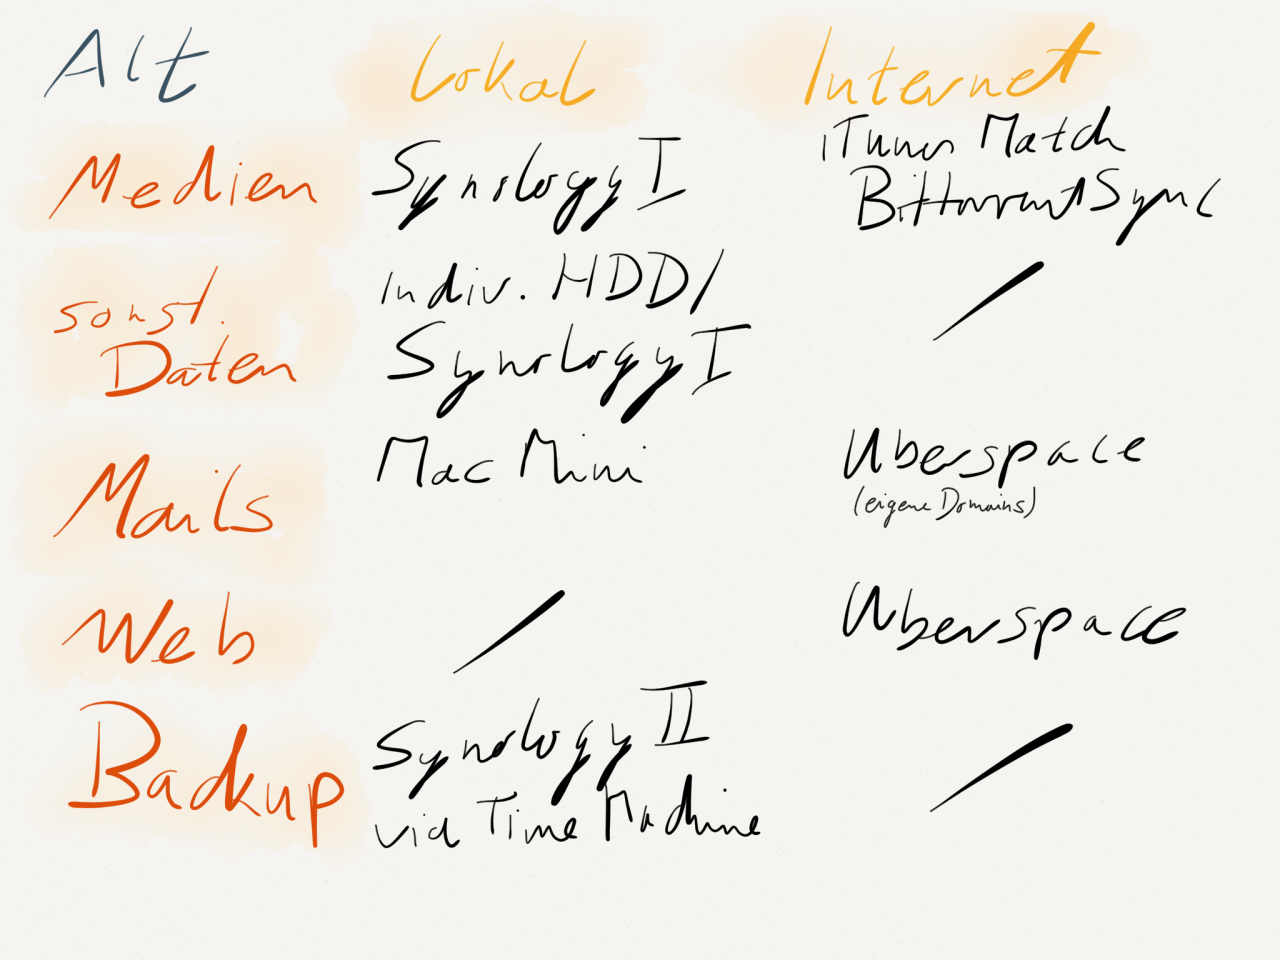 Alt Lokal Internet
iTunes Match
Medien Synology I
BittorrentSync
Indiv. HDD/
sonst.
Daten Synology I
Mails Mac Mini Uberspace
(eigene Domains)
Web / Uberspace
Backup Synology II
via Time Machine